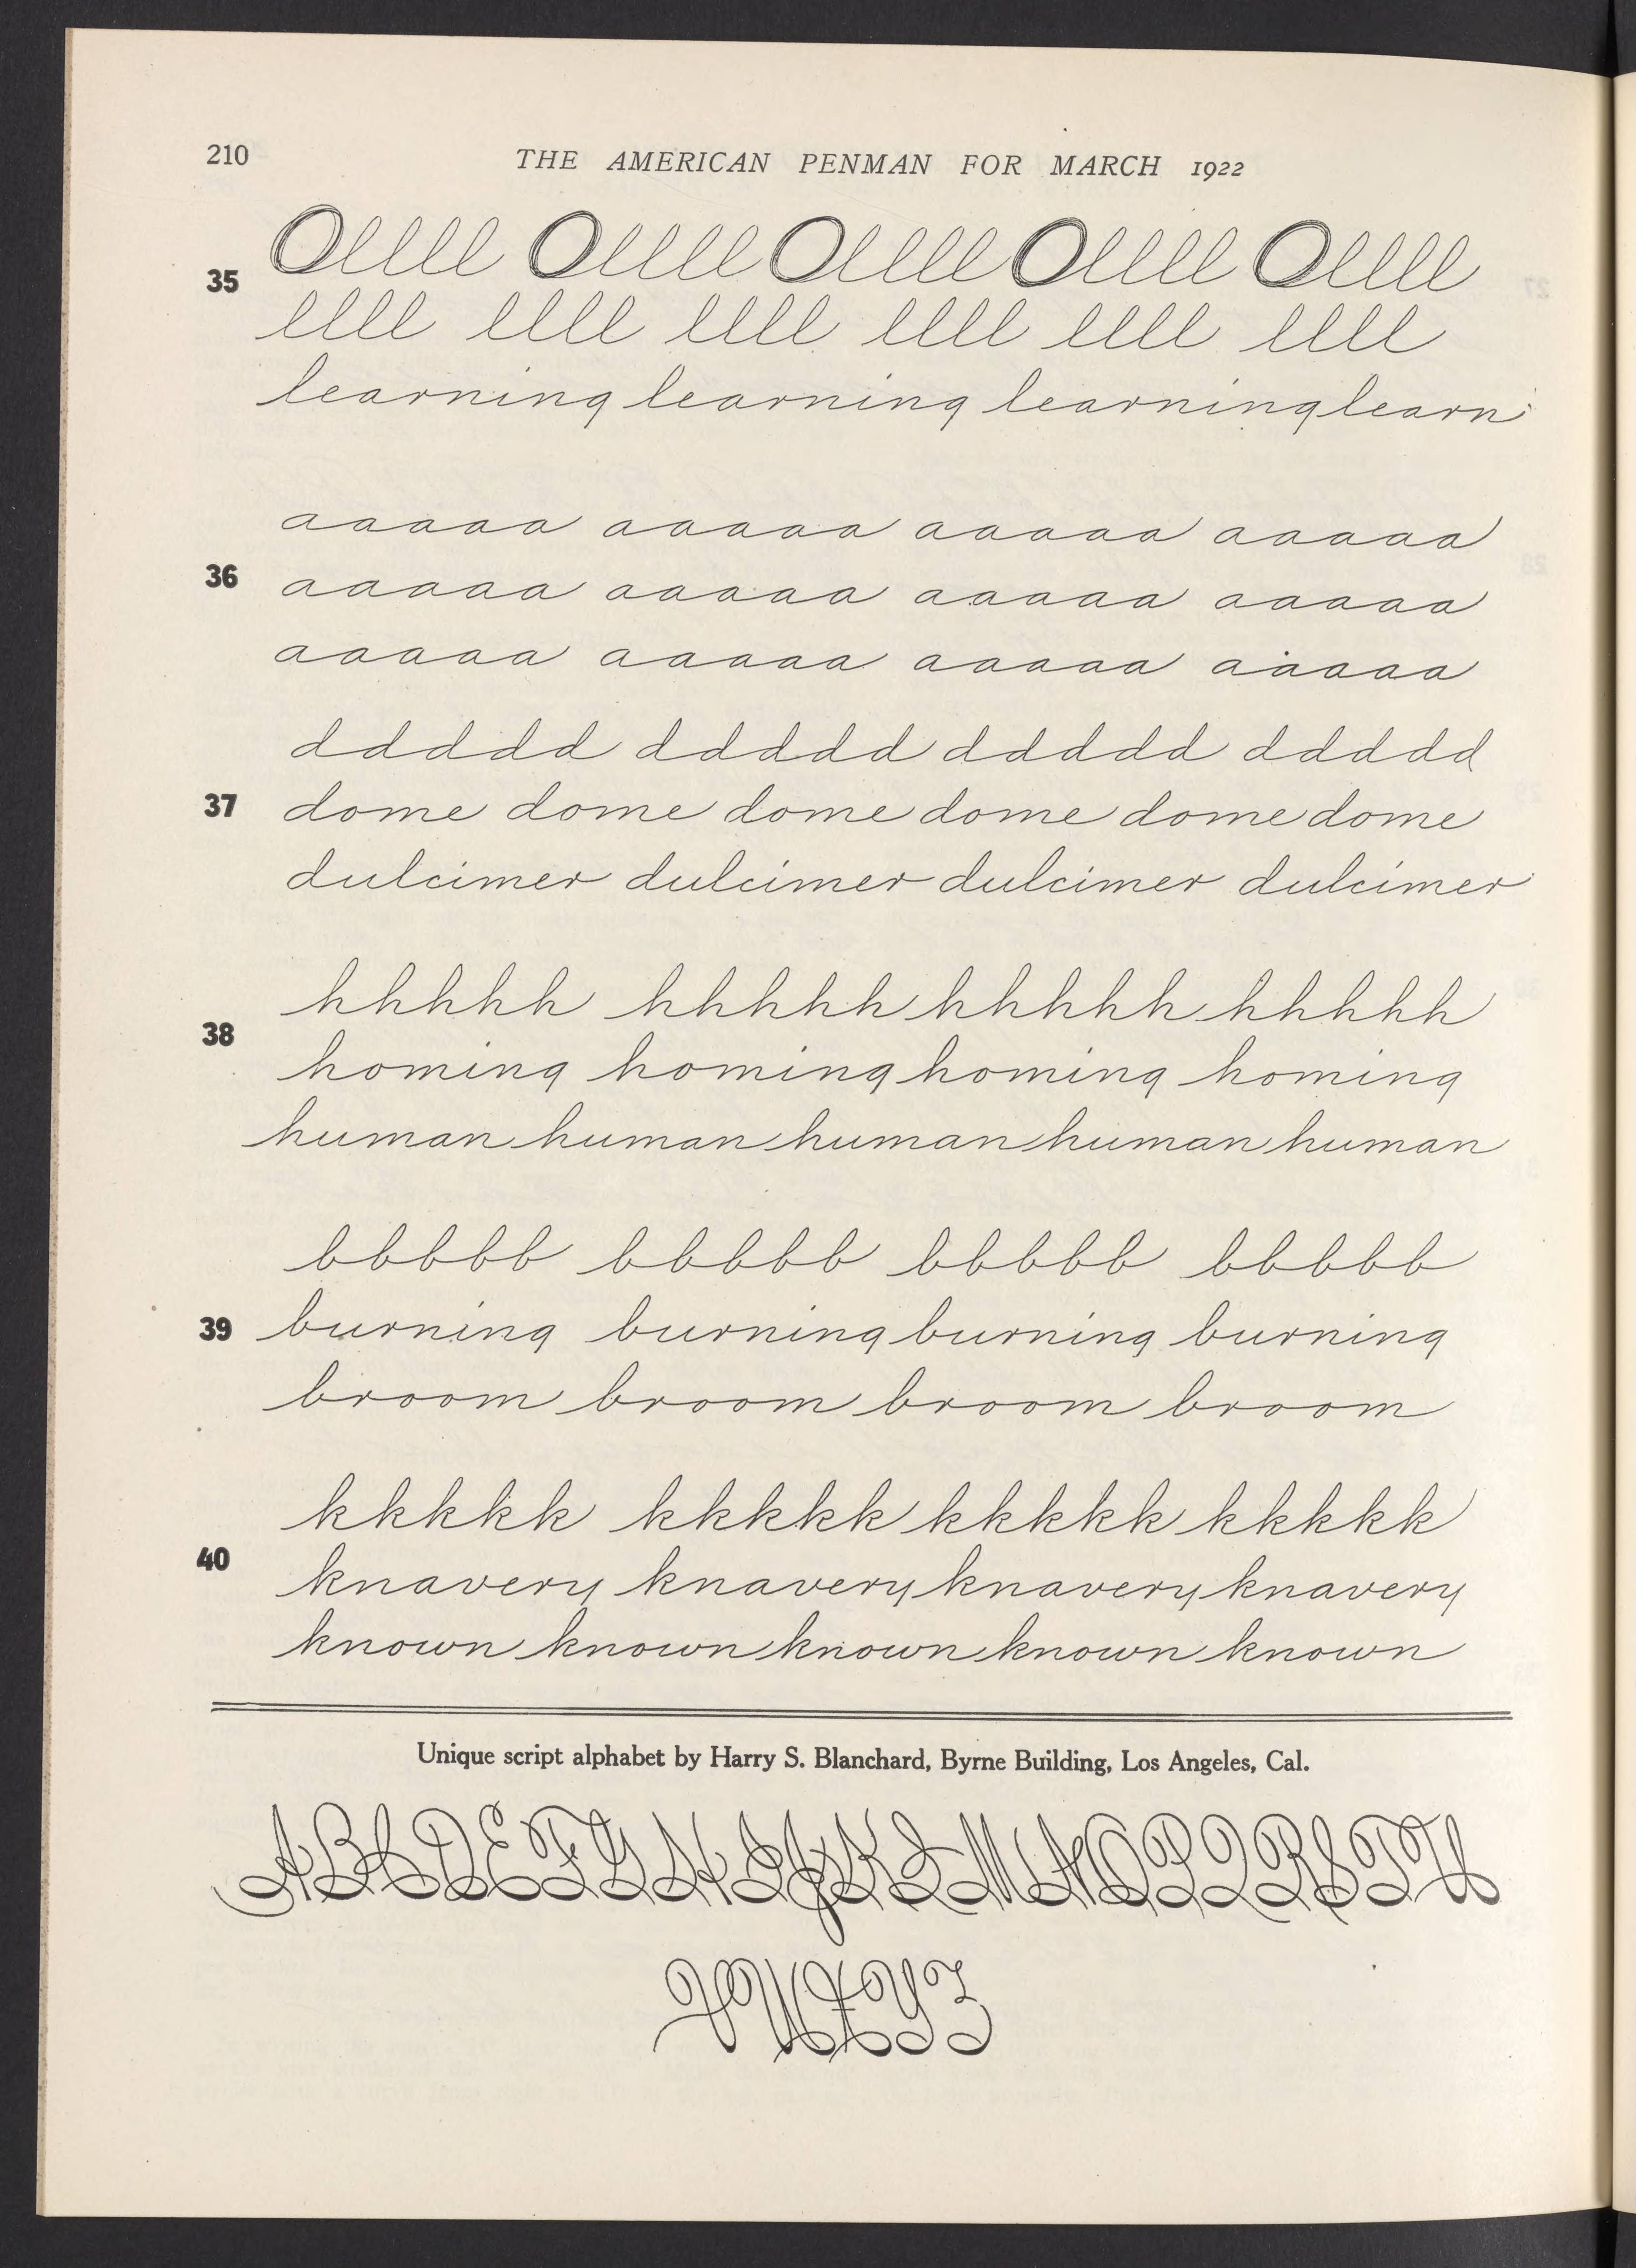 210
THE AMERICAN PENMAN FOR MARCH 1922
Ollll Ollll Ollll Ollll Ollll
35
llll llll llll llll llll llll
learning learning learning learn
aaaaa aaaaa aaaaa aaaaa
36 aaaaa aaaaa aaaaa aaaaa
aaaaa aaaaa aaaaa aaaaa
ddddd ddddd ddddd ddddd
37 dome dome dome dome dome dome
dulcimer dulcimer dulcimer dulcimer
hhhhh hhhhh hhhhh hhhhh
38
homing homing homing homing
human human human human human
bbbbb bbbbb bbbbb bbbbb
39 burning burning burning burning
broom broom broom broom
kkkkk kkkkk kkkkk kkkkk
40
knavery knavery knavery knavery
known known known known known
Unique script alphabet by Harry S. Blanchard, Byrne Building, Los Angeles, Cal.
ABCDEFGHIJKLMNOPQRSTU
VWXYZ